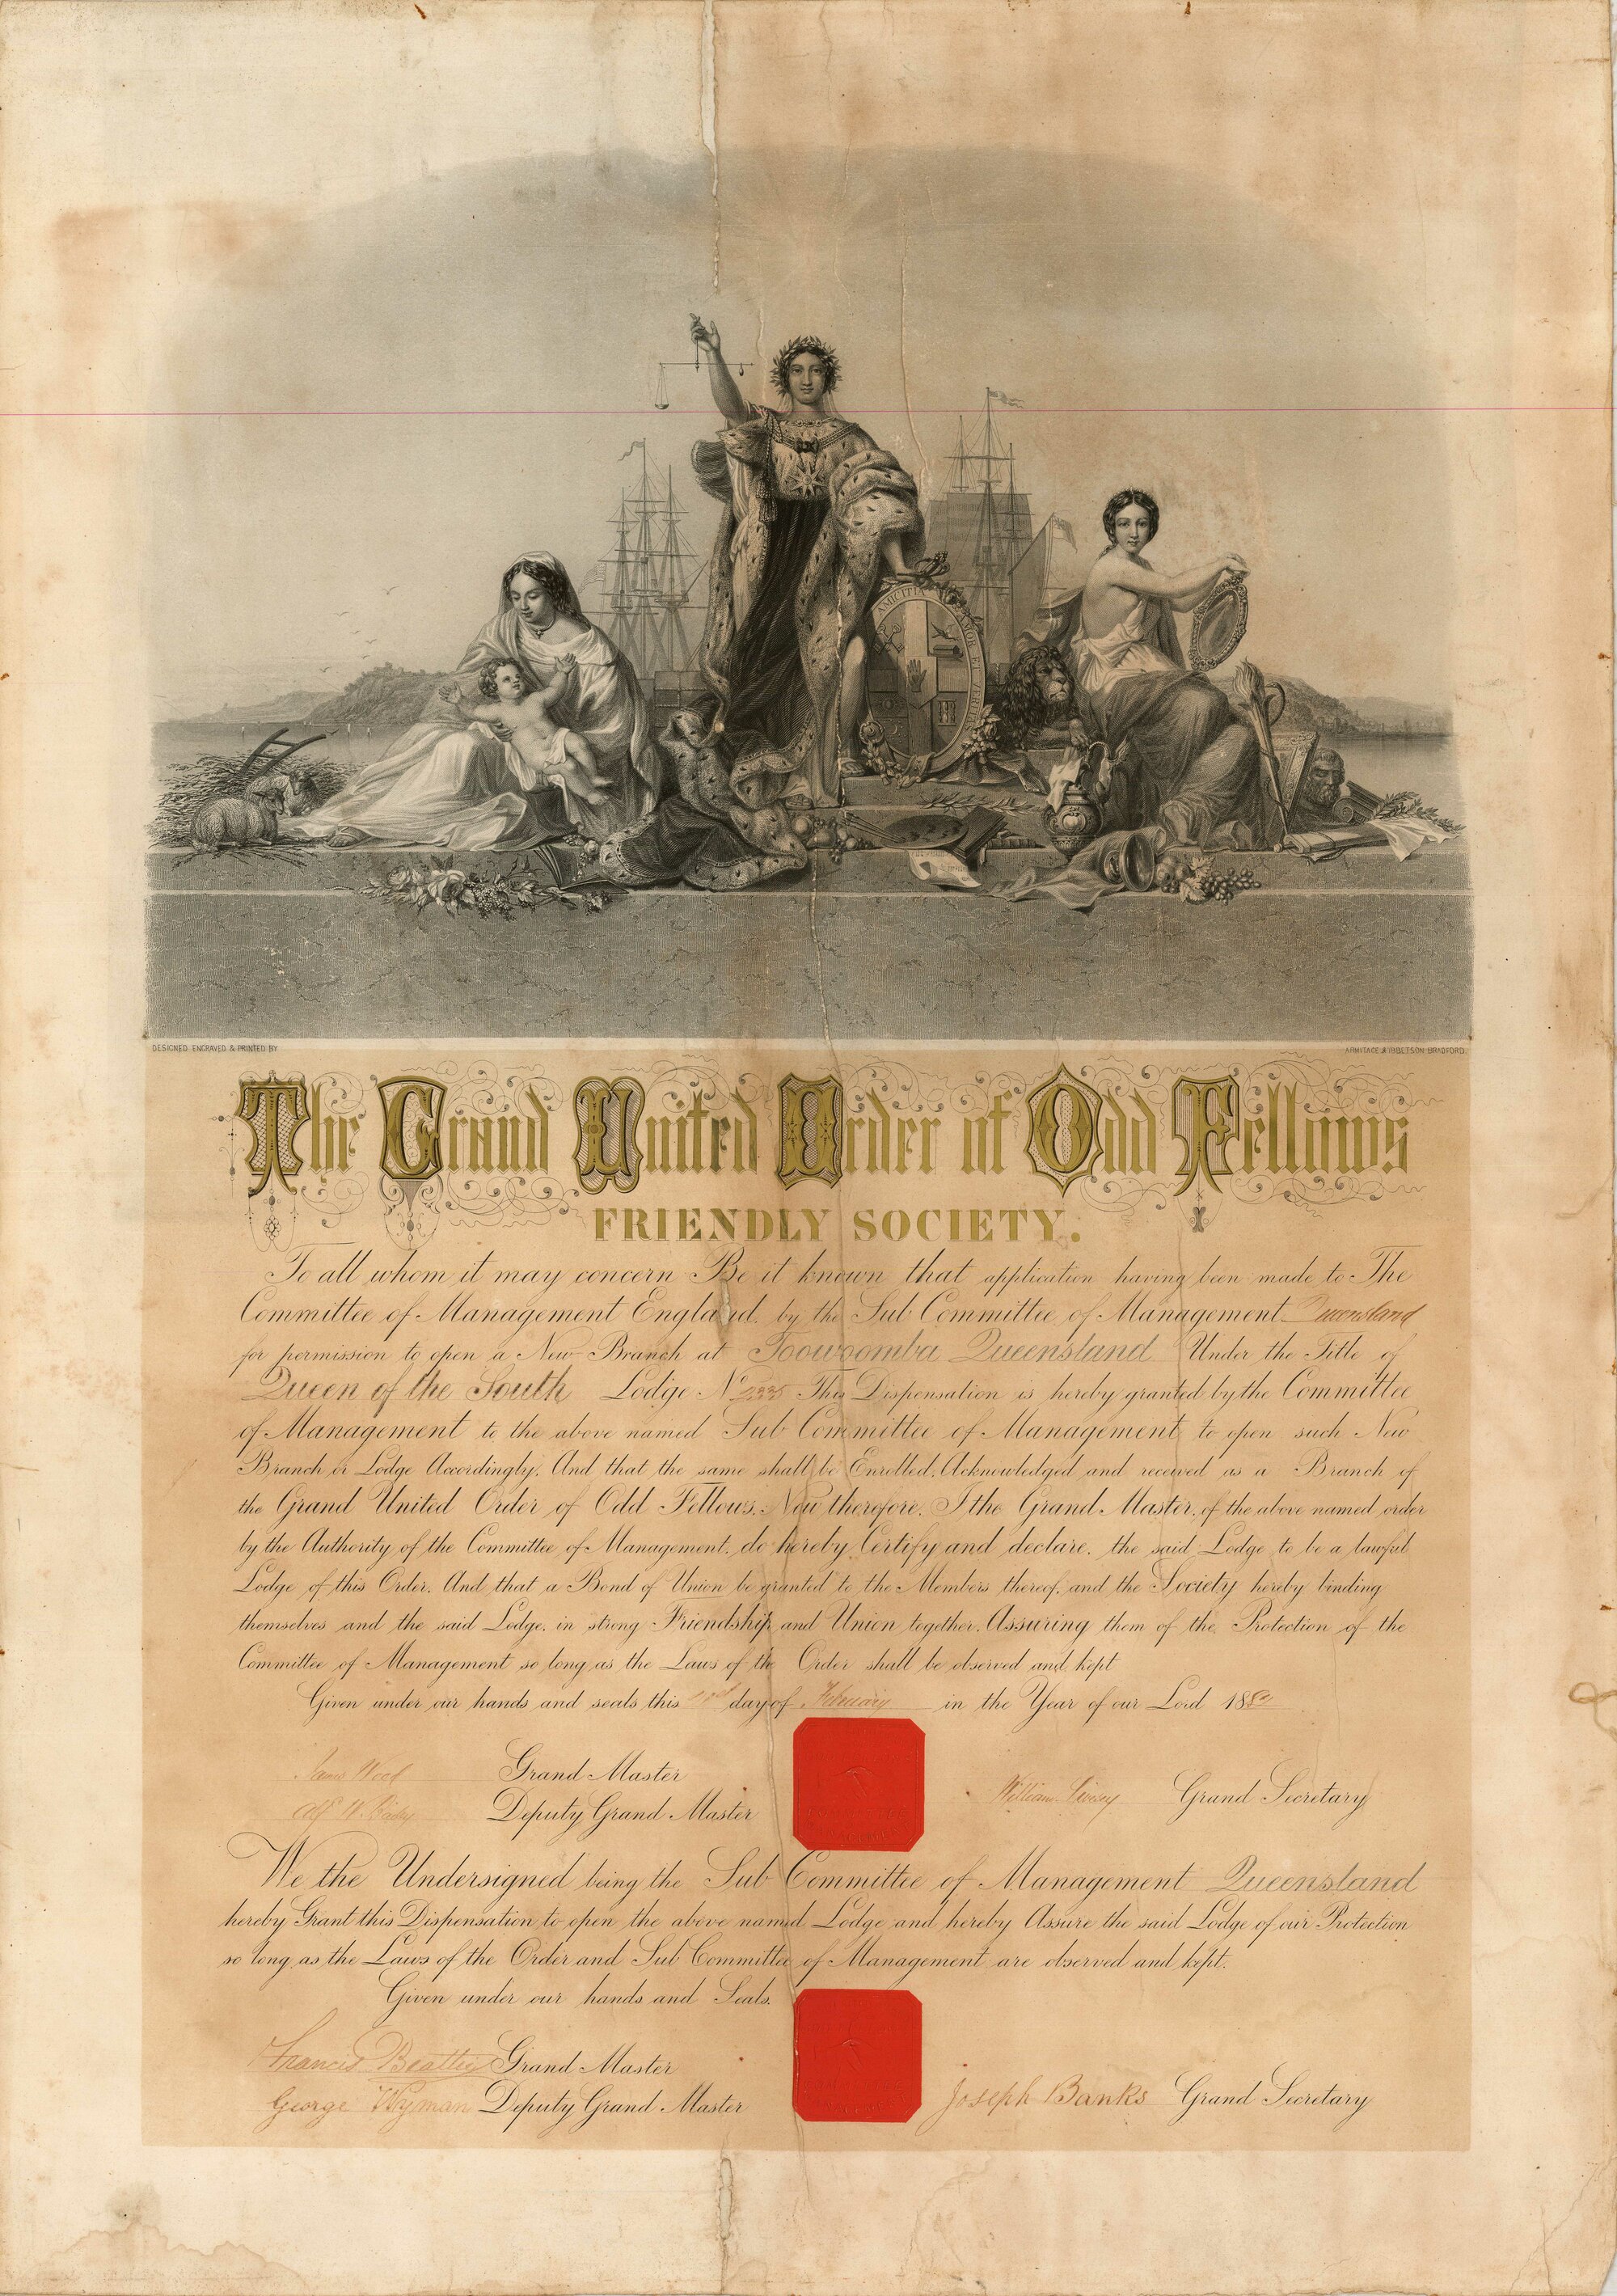 AMICITIA AMOR ET VERITAS
DESIGNED ENGRAVED & PRINTED BY
ARMITAGE & IBBETSON BRADFORD
The Grand United Order of Odd Fellows
FRIENDLY SOCIETY.
To all whom it may concern Be it known that application having been made to The
Committee of Management England. by the Sub Committee of Management. Queensland
for permission to open a New Branch at Toowoomba Queensland Under the Title of
Queen of the South Lodge No This Dispensation is hereby granted by the Committee
of Management to the above named Sub Committee of Management to open such New
Branch or Lodge Accordingly. And that the same shall be Enrolled. Acknowledged and received as a Branch of
the Grand United Order of Odd Fellows. Now therefore. I the Grand Master, of the above named order
by the Authority of the Committee of Management. do hereby Certify and declare. the said Lodge to be a lawful
Lodge of this Order. And that a Bond of Union be granted to the Members thereof. and the Society hereby binding
themselves and the said Lodge. in strong Friendship and Union together. Assuring them of the Protection of the
Committee of Management so long as the Laws of the Order shall be observed and kept
Given under our hands and seals this day of February in the Year of our Lord 188
James Wood Grand Master
Deputy Grand Master
William Grand Secretary
We the Undersigned being the Sub Committee of Management Queensland
hereby Grant this Dispensation to open the above named Lodge and hereby Assure the said Lodge of our Protection
so long as the Laws of the Order and Sub Committee of Management are observed and kept.
Given under our hands and Seals.
Francis Beattie Grand Master
George Wyman Deputy Grand Master
Joseph Banks Grand Secretary